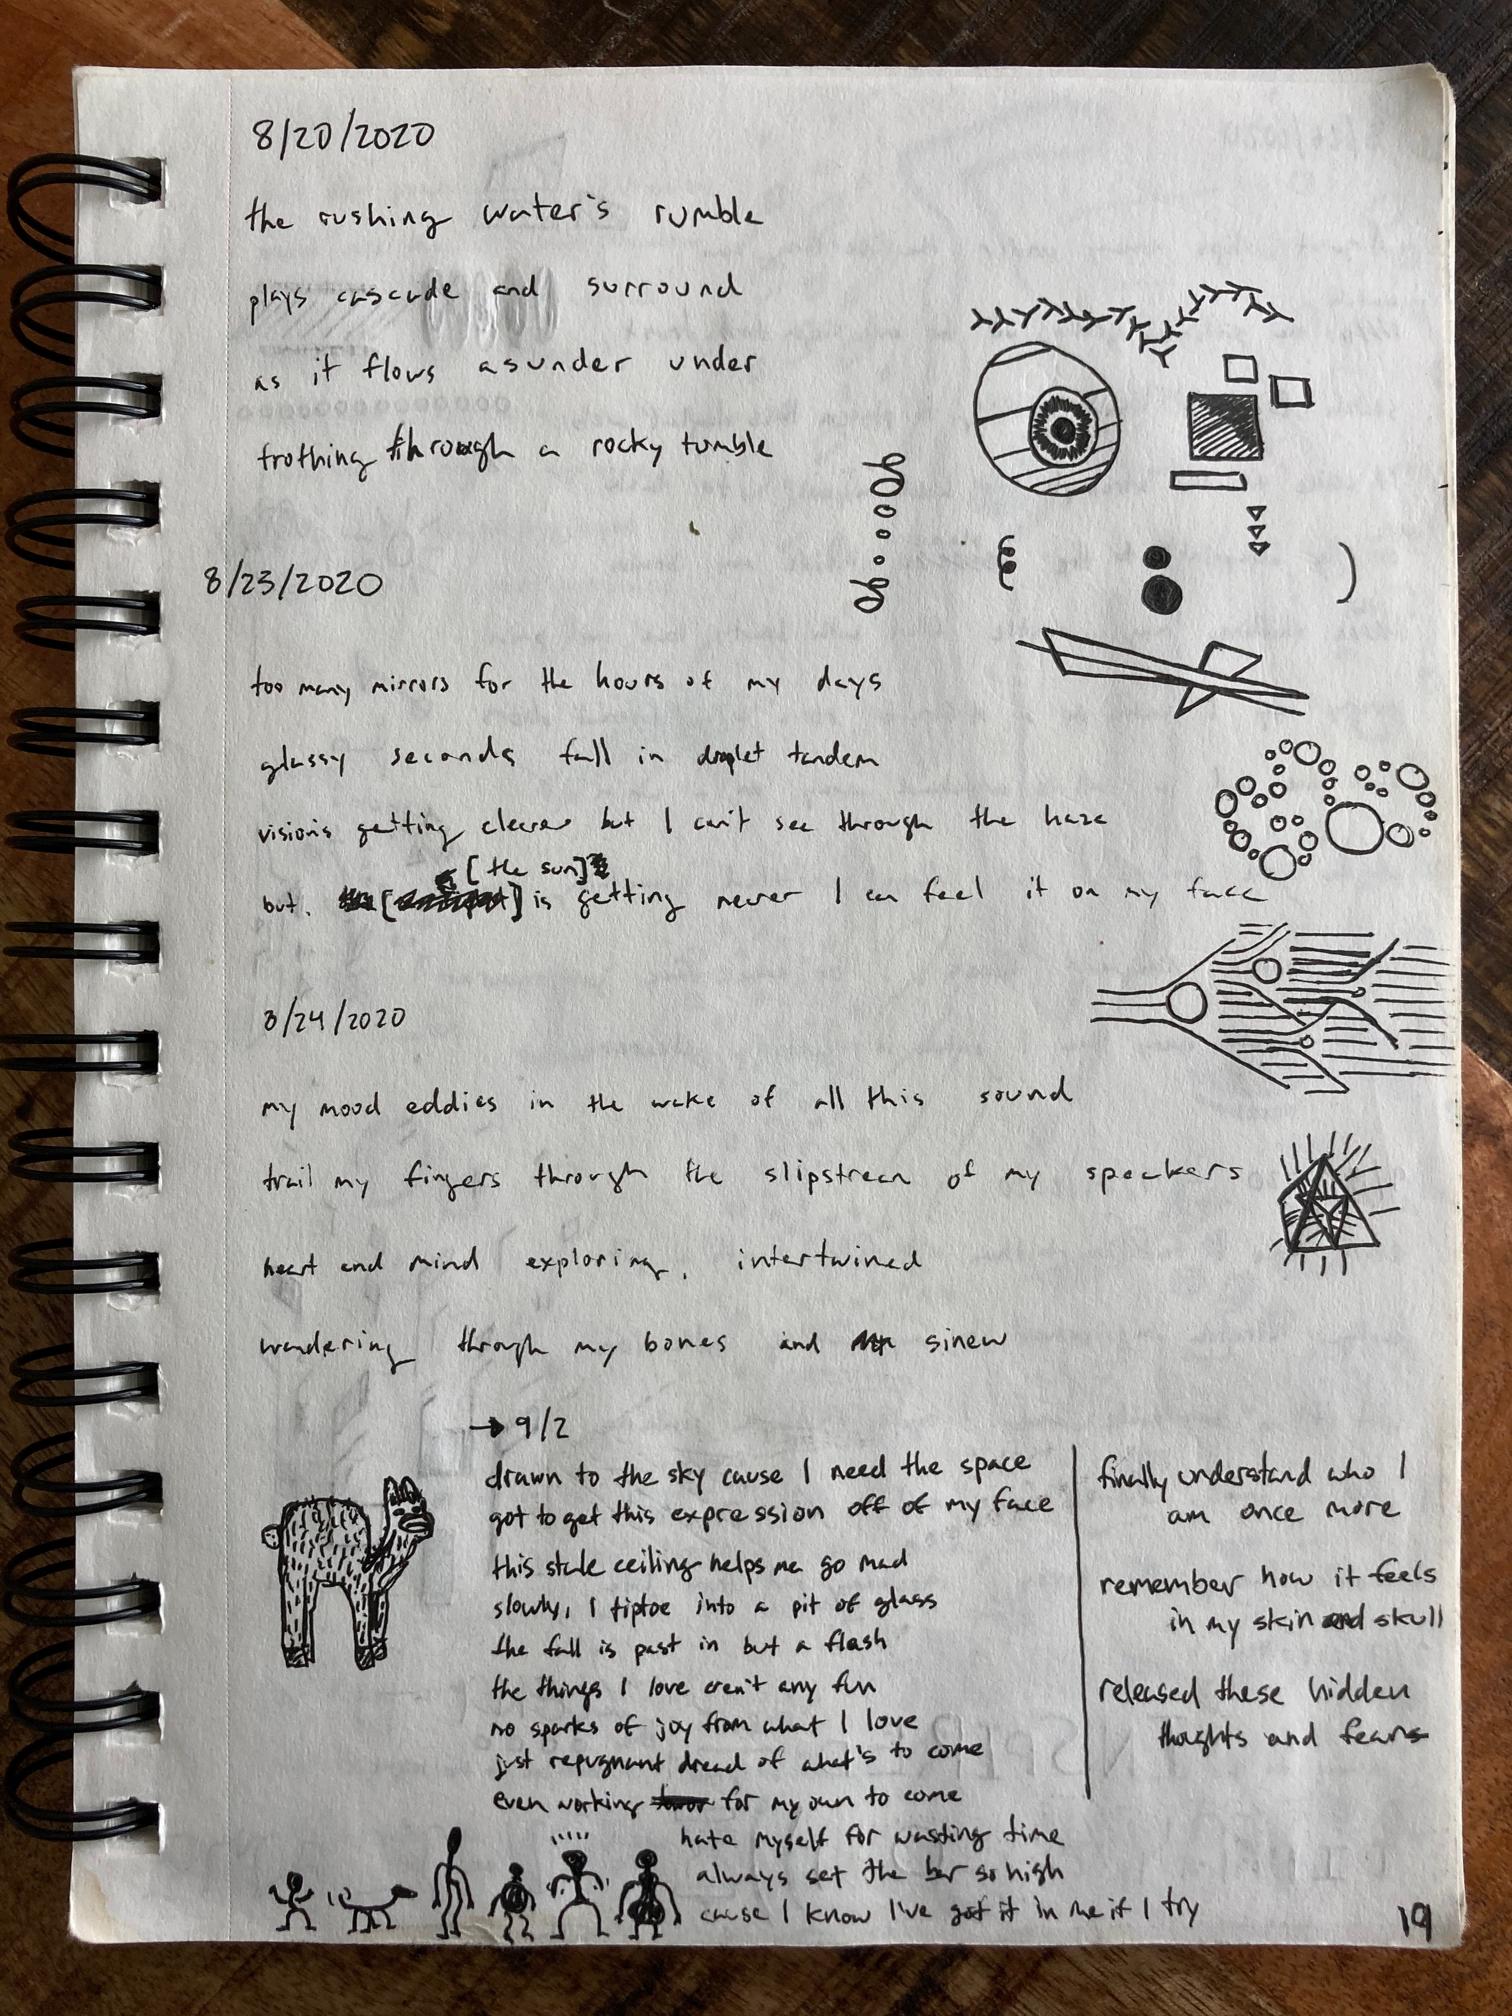 8/20/2020
the rushing water's rumble
plays cascade and surround
as it flows asunder under
frothing through a rocky tumble
8/23/2020
too many mirrors for the hours of my days
glassy seconds fall in droplet tandem
visions getting clearer but I can't see through the haze
[the sun]
but. is getting nearer I can feel it on my face
8/24/2020
my mood eddies in the wake of all this sound
trail my fingers through the slipstream of my speakers
heart and mind exploring, intertwined
wandering through my bones and sinew
→ 9/2
drawn to the sky cause I need the space
got to get this expression off of my face
this stale ceiling helps me go mad
slowly, I tiptoe into a pit of glass
the fall is past in but a flash
the things I love aren't any fun
no sparks of joy from what I love
just repugnant dread of what's to come
even working for my own to come
hate myself for wasting time
always set the bar so high
cause I know I've got it in me if I try
finally understand who I
am once more
remember how it feels
in my skin and skull
released these hidden
thoughts and fears
19